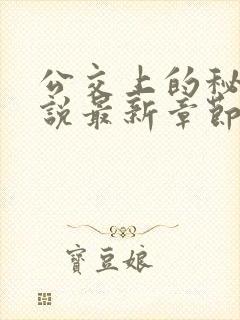 公交上的秘
說最新章節
寶豆娘